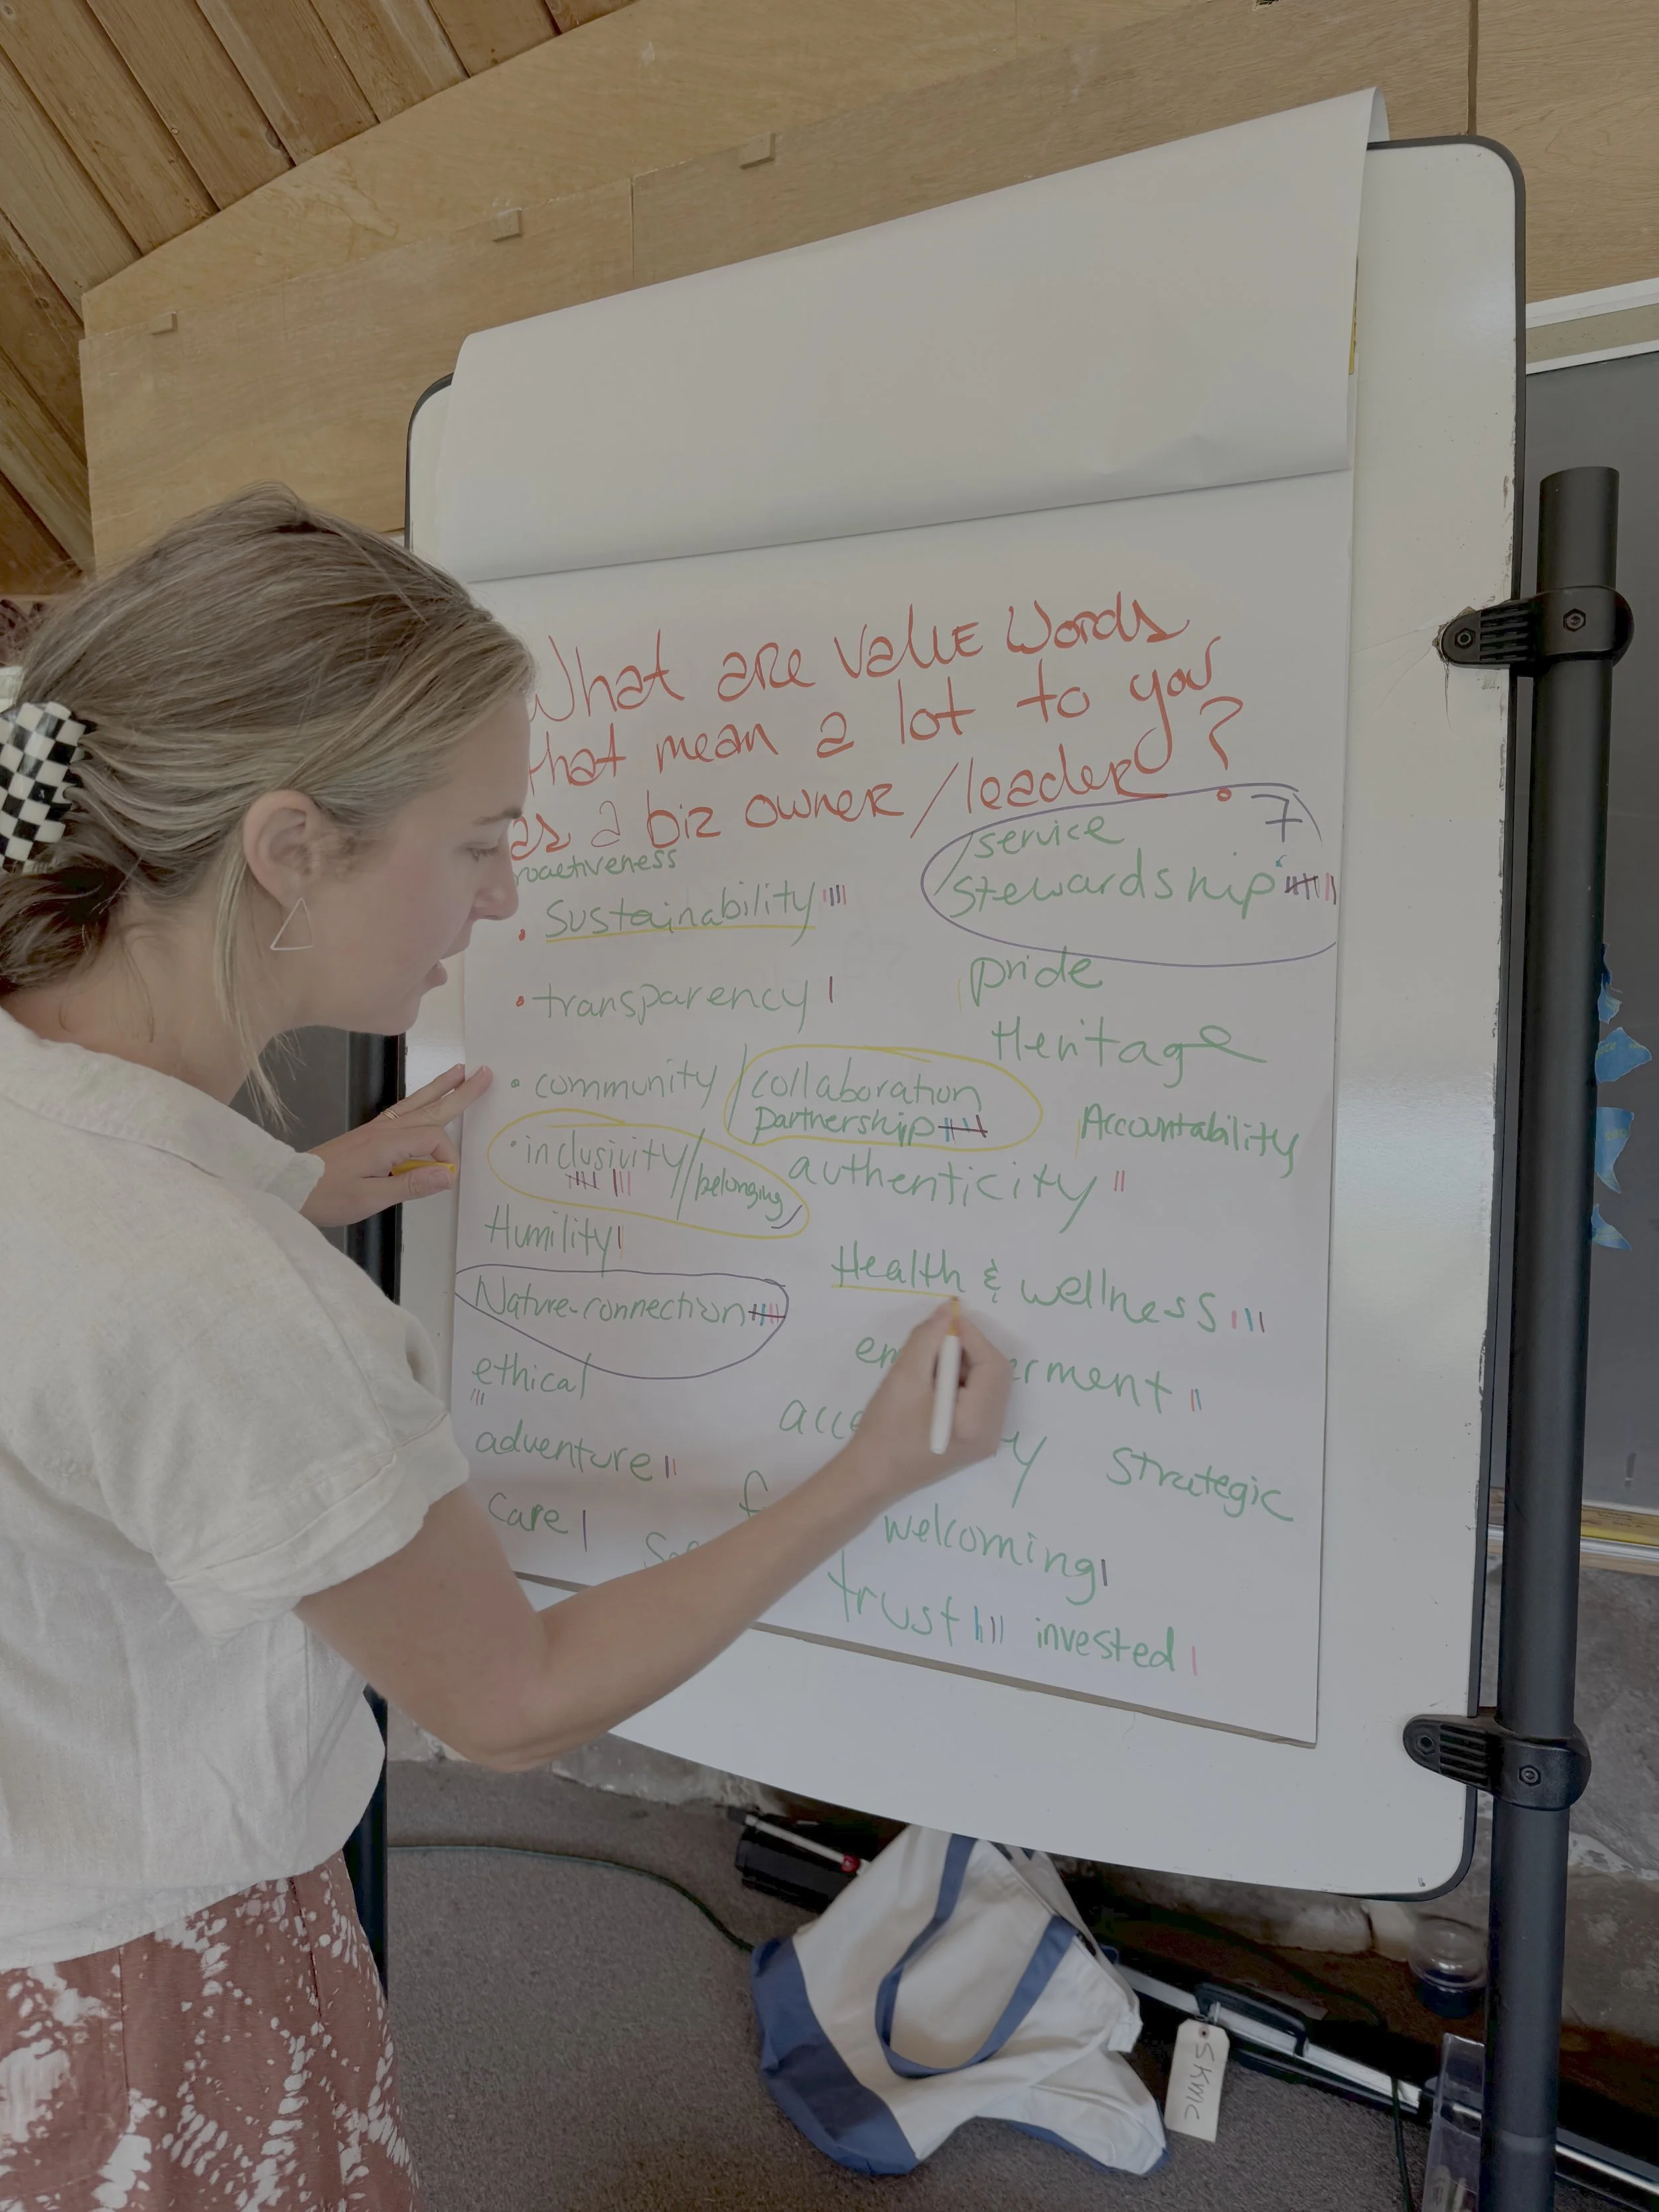 What are value words
that mean a lot to you
as a biz owner/leader?
roactiveness
• Sustainability
• transparency
• community / collaboration
partnership
• inclusivity / belonging
Humility
Nature-connection
ethical
adventure
care
service 7
Stewardship
pride
Heritage
Accountability
authenticity
Health & wellness
strategic
welcoming
trust
invested
SKWIC